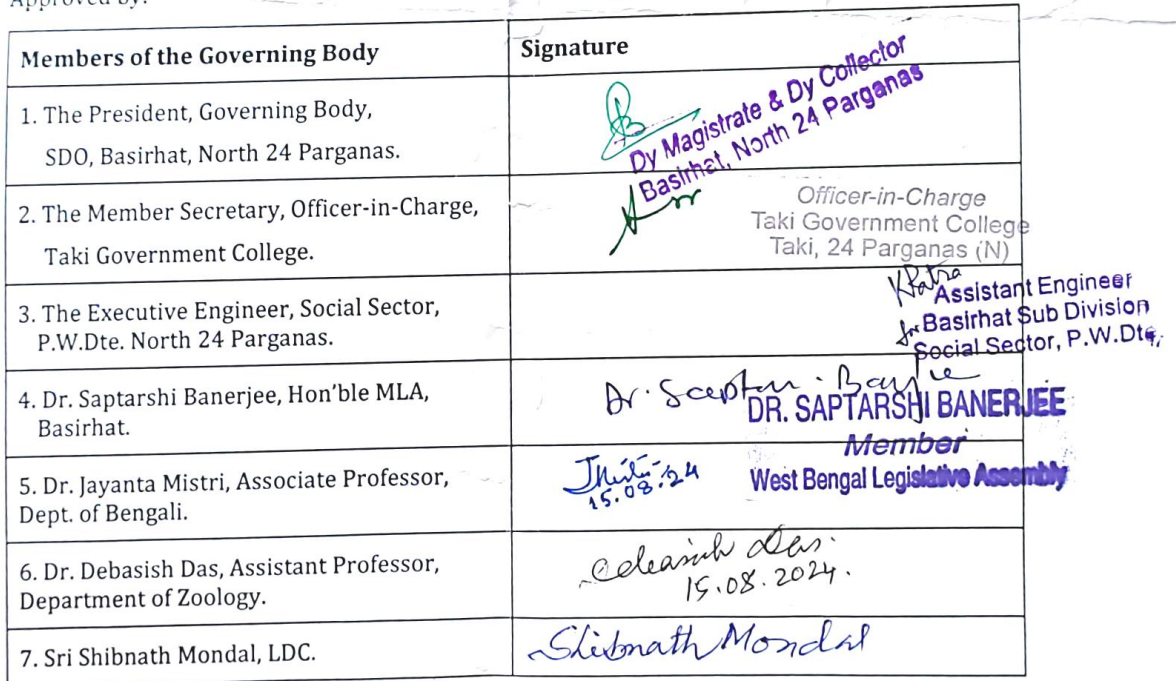 Approved by:
Members of the Governing Body
Signature
1. The President, Governing Body,
SDO, Basirhat, North 24 Parganas.
Dy Magistrate & Dy Collector
Basirhat, North 24 Parganas
2. The Member Secretary, Officer-in-Charge,
Taki Government College.
Officer-in-Charge
Taki Government College
Taki, 24 Parganas (N)
3. The Executive Engineer, Social Sector,
P.W.Dte. North 24 Parganas.
KPatra
Assistant Engineer
Basirhat Sub Division
Social Sector, P.W.Dte,
4. Dr. Saptarshi Banerjee, Hon'ble MLA,
Basirhat.
Dr.
DR. SAPTARSHI BANERJEE
Member
West Bengal Legislative Assembly
5. Dr. Jayanta Mistri, Associate Professor,
Dept. of Bengali.
15.08.24
6. Dr. Debasish Das, Assistant Professor,
Department of Zoology.
Debasish Das.
15.08.2024.
7. Sri Shibnath Mondal, LDC.
Shibnath Mondal